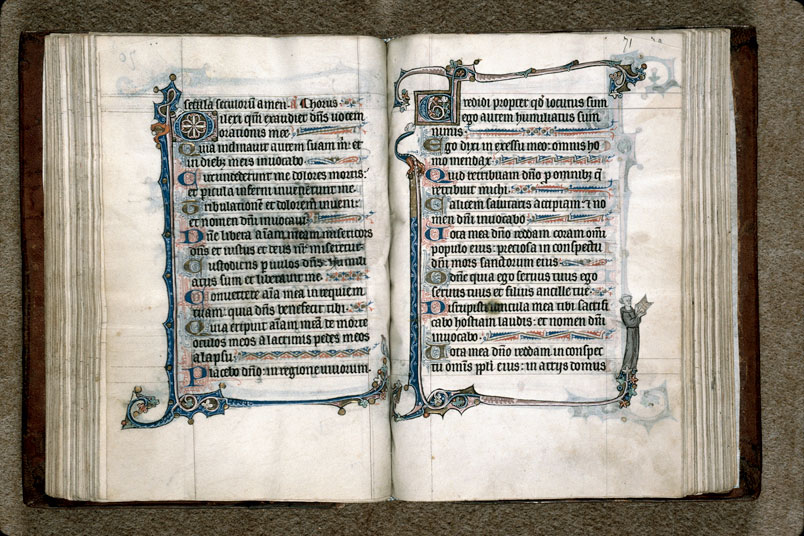 secula seculorū amen. A Chorus
Dilexi qm̄ exaudiet dn̄s uocem
orationis mee.
Quia inclinauit aurem suam m̄: et
in dieb; meis inuocabo.
Circumdederunt me dolores mortis:
et picula inferni inuenerunt me.
Tribulationē et dolorem inueni:
et nomen dn̄i inuocaui.
Dn̄e libera aīam meam misericors
dn̄s et iustus et deus nr̄ miseretur.
Custodiens puulos dn̄s: humili
atus sum et liberauit me.
Conuertere aīa mea in requiem
tuam: quia dn̄s benefecit tibi.
Quia eripuit aīam meā de morte
oculos meos a lacrimis pedes meos
a lapsu.
Placebo dn̄o: in regione uiuorum.
71
Credidi propter qd̄ locutus sum
ego autem humiliatus sum
nimis.
Ego dixi in excessu meo: omnis ho
mo mendax.
Quid retribuam dn̄o p omnib; q̄
retribuit michi.
Calicem salutaris accipiam: et no
men dn̄i inuocabo.
Uota mea dn̄o reddam coram omī
populo eius: preciosa in conspectu
dn̄i mors sanctorum eius.
O dn̄e quia ego seruus tuus ego
seruus tuus et filius ancille tue.
Dirupisti uincula mea tibi sacrifi
cabo hostiam laudis: et nomen dn̄i
inuocabo.
Uota mea dn̄o reddam in conspec
tu omīs ppli eius: in atrijs domus